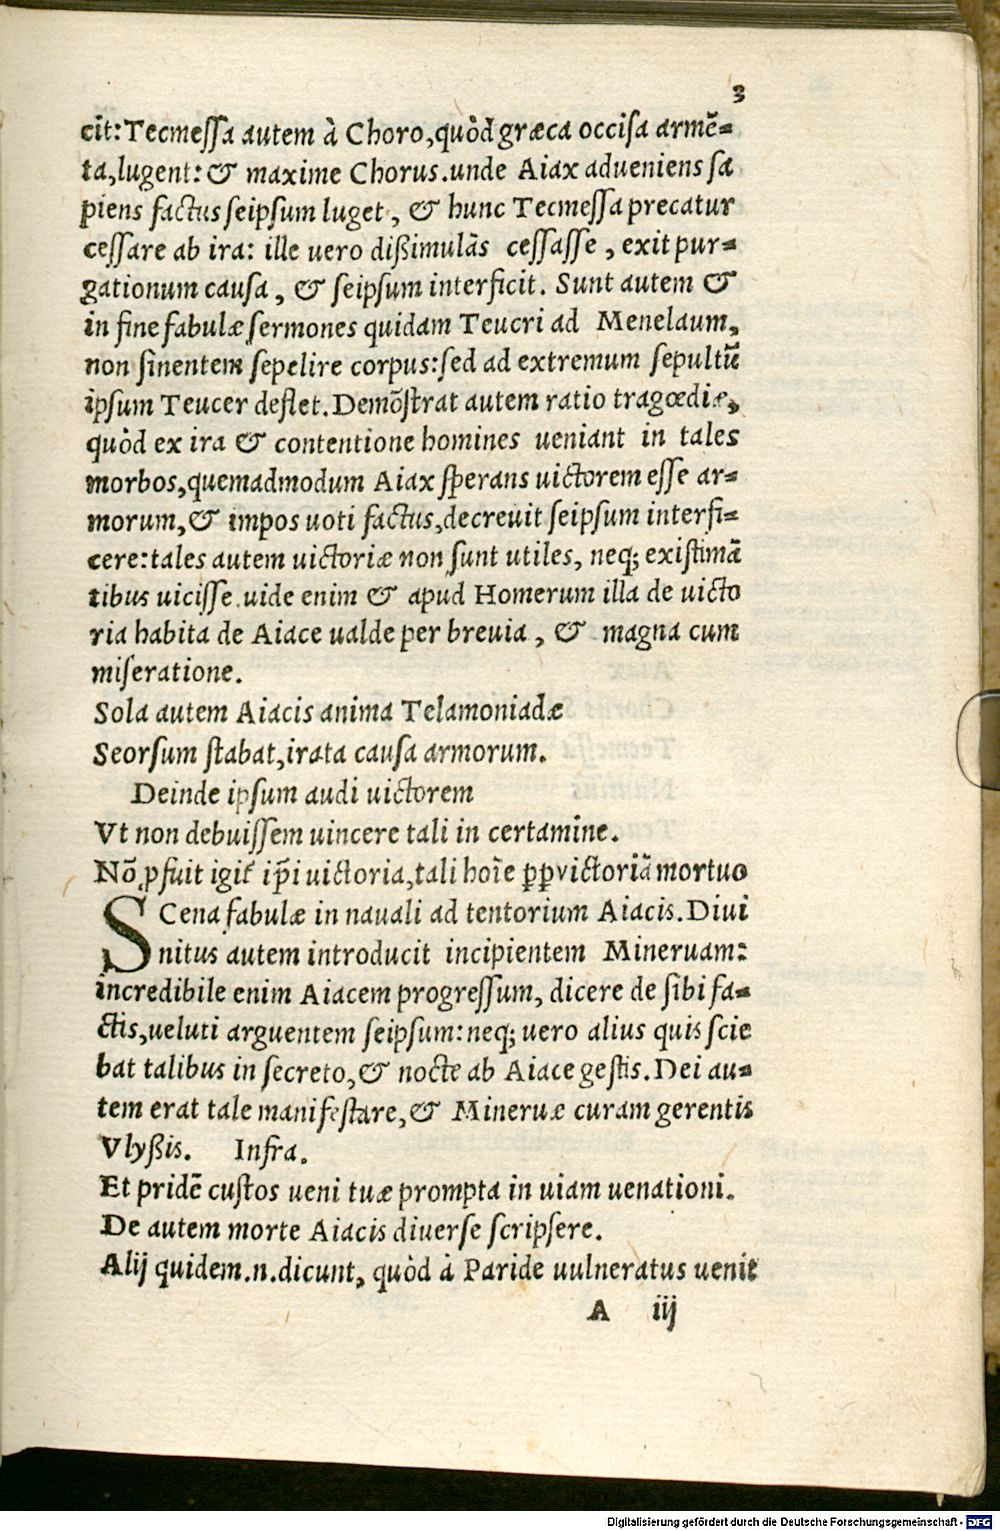 3
cit: Tecmeſſa autem à Choro, quòd græca occiſa armẽ=
ta, lugent: & maxime Chorus. unde Aiax adueniens ſa
piens factus ſeipſum luget, & hunc Tecmeſſa precatur
ceſſare ab ira: ille uero dißimulãs ceſſaſſe, exit pur=
gationum cauſa, & ſeipſum interficit. Sunt autem &
in fine fabulæ ſermones quidam Teucri ad Menelaum,
non ſinentem ſepelire corpus: ſed ad extremum ſepultũ
ipſum Teucer deflet. Demõſtrat autem ratio tragœdiæ,
quòd ex ira & contentione homines ueniant in tales
morbos, quemadmodum Aiax ſperans uictorem eſſe ar=
morum, & impos uoti factus, decreuit ſeipſum interfi=
cere: tales autem uictoriæ non ſunt utiles, neq; existimã
tibus uiciſſe. uide enim & apud Homerum illa de uicto
ria habita de Aiace ualde per breuia, & magna cum
miſeratione.
Sola autem Aiacis anima Telamoniadæ
Seorſum ſtabat, irata cauſa armorum.
Deinde ipſum audi uictorem
Vt non debuiſſem uincere tali in certamine.
Nõ ꝓfuit igit᷑ ip̃i uictoria, tali hoĩe ꝓp victoriã mortuo
SCena fabulæ in nauali ad tentorium Aiacis. Diui
nitus autem introducit incipientem Mineruam:
incredibile enim Aiacem progreſſum, dicere de ſibi fa=
ctis, ueluti arguentem ſeipſum: neq; uero alius quis ſcie
bat talibus in ſecreto, & nocte ab Aiace geſtis. Dei au=
tem erat tale manifeſtare, & Mineruæ curam gerentis
Vlyßis. Infra.
Et pridẽ cuſtos ueni tuæ prompta in uiam uenationi.
De autem morte Aiacis diuerſe ſcripſere.
Alij quidem .n. dicunt, quòd à Paride uulneratus uenit
A iij
Digitalisierung gefördert durch die Deutsche Forschungsgemeinschaft - DFG